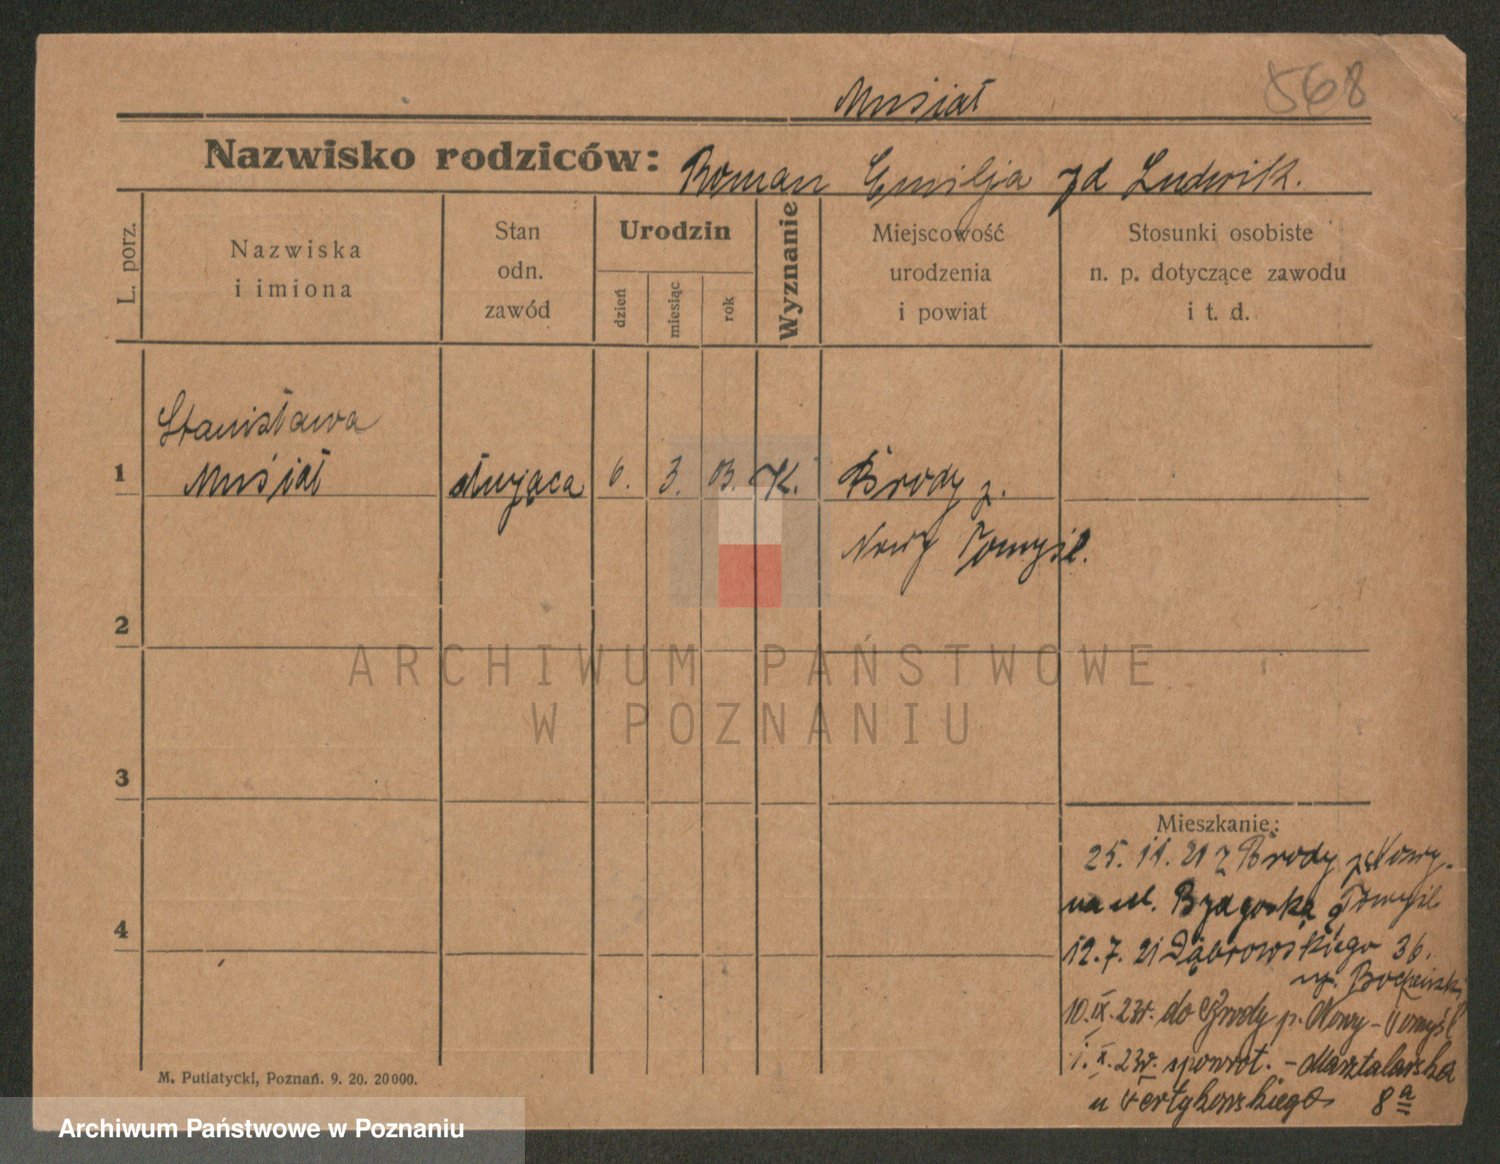 568
Musiał
Nazwisko rodziców: Roman Emilja zd Ludwik.
L. porz.
Nazwiska
i imiona
Stan
odn.
zawód
Urodzin
dzień
miesiąc
rok
Wyznanie
Miejscowość
urodzenia
i powiat
Stosunki osobiste
n. p. dotyczące zawodu
i t. d.
Stanisława
1 Musiał służąca 6. 3. 03. K. Brody p.
Nowy Tomyśl.
2
ARCHIWUM PAŃSTWOWE
W POZNANIU
3
4
Mieszkanie:
25. 11. 21 z Brody p. Nowy-
na ul. Bydgoską 9 Tomyśl
12. 7. 21 Dąbrowskiego 36.
10. IX. 23r. do Brody p. Nowy-Tomyśl
1. X. 23r. spowrot. - Masztalarska
u 8a
M. Putiatycki, Poznań. 9. 20. 20000.
Archiwum Państwowe w Poznaniu